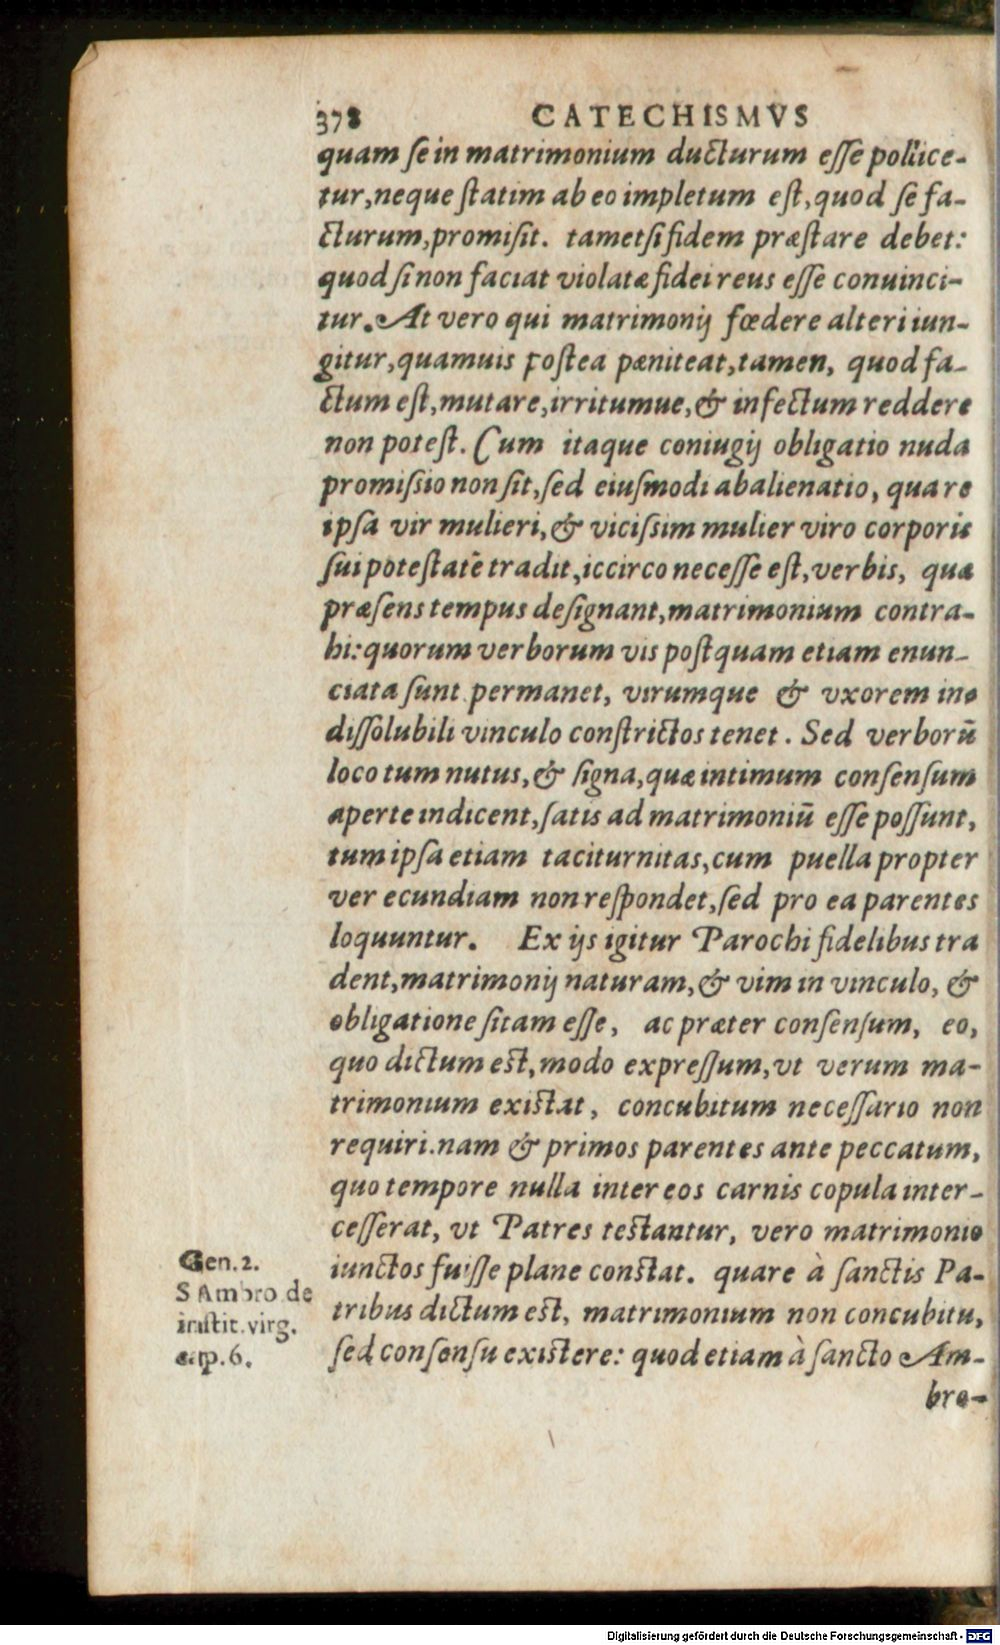 378 CATECHISMVS
quam ſe in matrimonium ducturum eſſe pollice-
tur, neque ſtatim ab eo impletum eſt, quod ſe fa-
cturum, promiſit. tametſi fidem præſtare debet:
quod ſi non faciat violatæ fidei reus eſſe conuinci-
tur. At vero qui matrimonij fœdere alteri iun-
gitur, quamuis poſtea pæniteat, tamen, quod fa-
ctum eſt, mutare, irritumue, & infectum reddere
non poteſt. Cum itaque coniugij obligatio nuda
promiſsio non ſit, ſed eiuſmodi abalienatio, qua re
ipſa vir mulieri, & viciſsim mulier viro corporis
ſui poteſtatē tradit, iccirco neceſſe eſt, verbis, quæ
præſens tempus deſignant, matrimonium contra-
hi: quorum verborum vis poſtquam etiam enun-
ciata ſunt permanet, virumque & vxorem in-
diſſolubili vinculo conſtrictos tenet. Sed verborū
loco tum nutus, & ſigna, quæ intimum conſenſum
aperte indicent, ſatis ad matrimoniū eſſe poſſunt,
tum ipſa etiam taciturnitas, cum puella propter
verecundiam non reſpondet, ſed pro ea parentes
loquuntur. Ex ijs igitur Parochi fidelibus tra
dent, matrimonij naturam, & vim in vinculo, &
obligatione ſitam eſſe, ac præter conſenſum, eo,
quo dictum eſt, modo expreſſum, vt verum ma-
trimonium exiſtat, concubitum neceſſario non
requiri. nam & primos parentes ante peccatum,
quo tempore nulla inter eos carnis copula inter-
ceſſerat, vt Patres teſtantur, vero matrimonio
iunctos fuiſſe plane conſtat. quare à ſanctis Pa-
tribus dictum eſt, matrimonium non concubitu,
ſed conſenſu exiſtere: quod etiam à ſancto Am-
bro-
Gen. 2.
S Ambro de
inſtit. virg.
cap. 6.
Digitalisierung gefördert durch die Deutsche Forschungsgemeinschaft - DFG